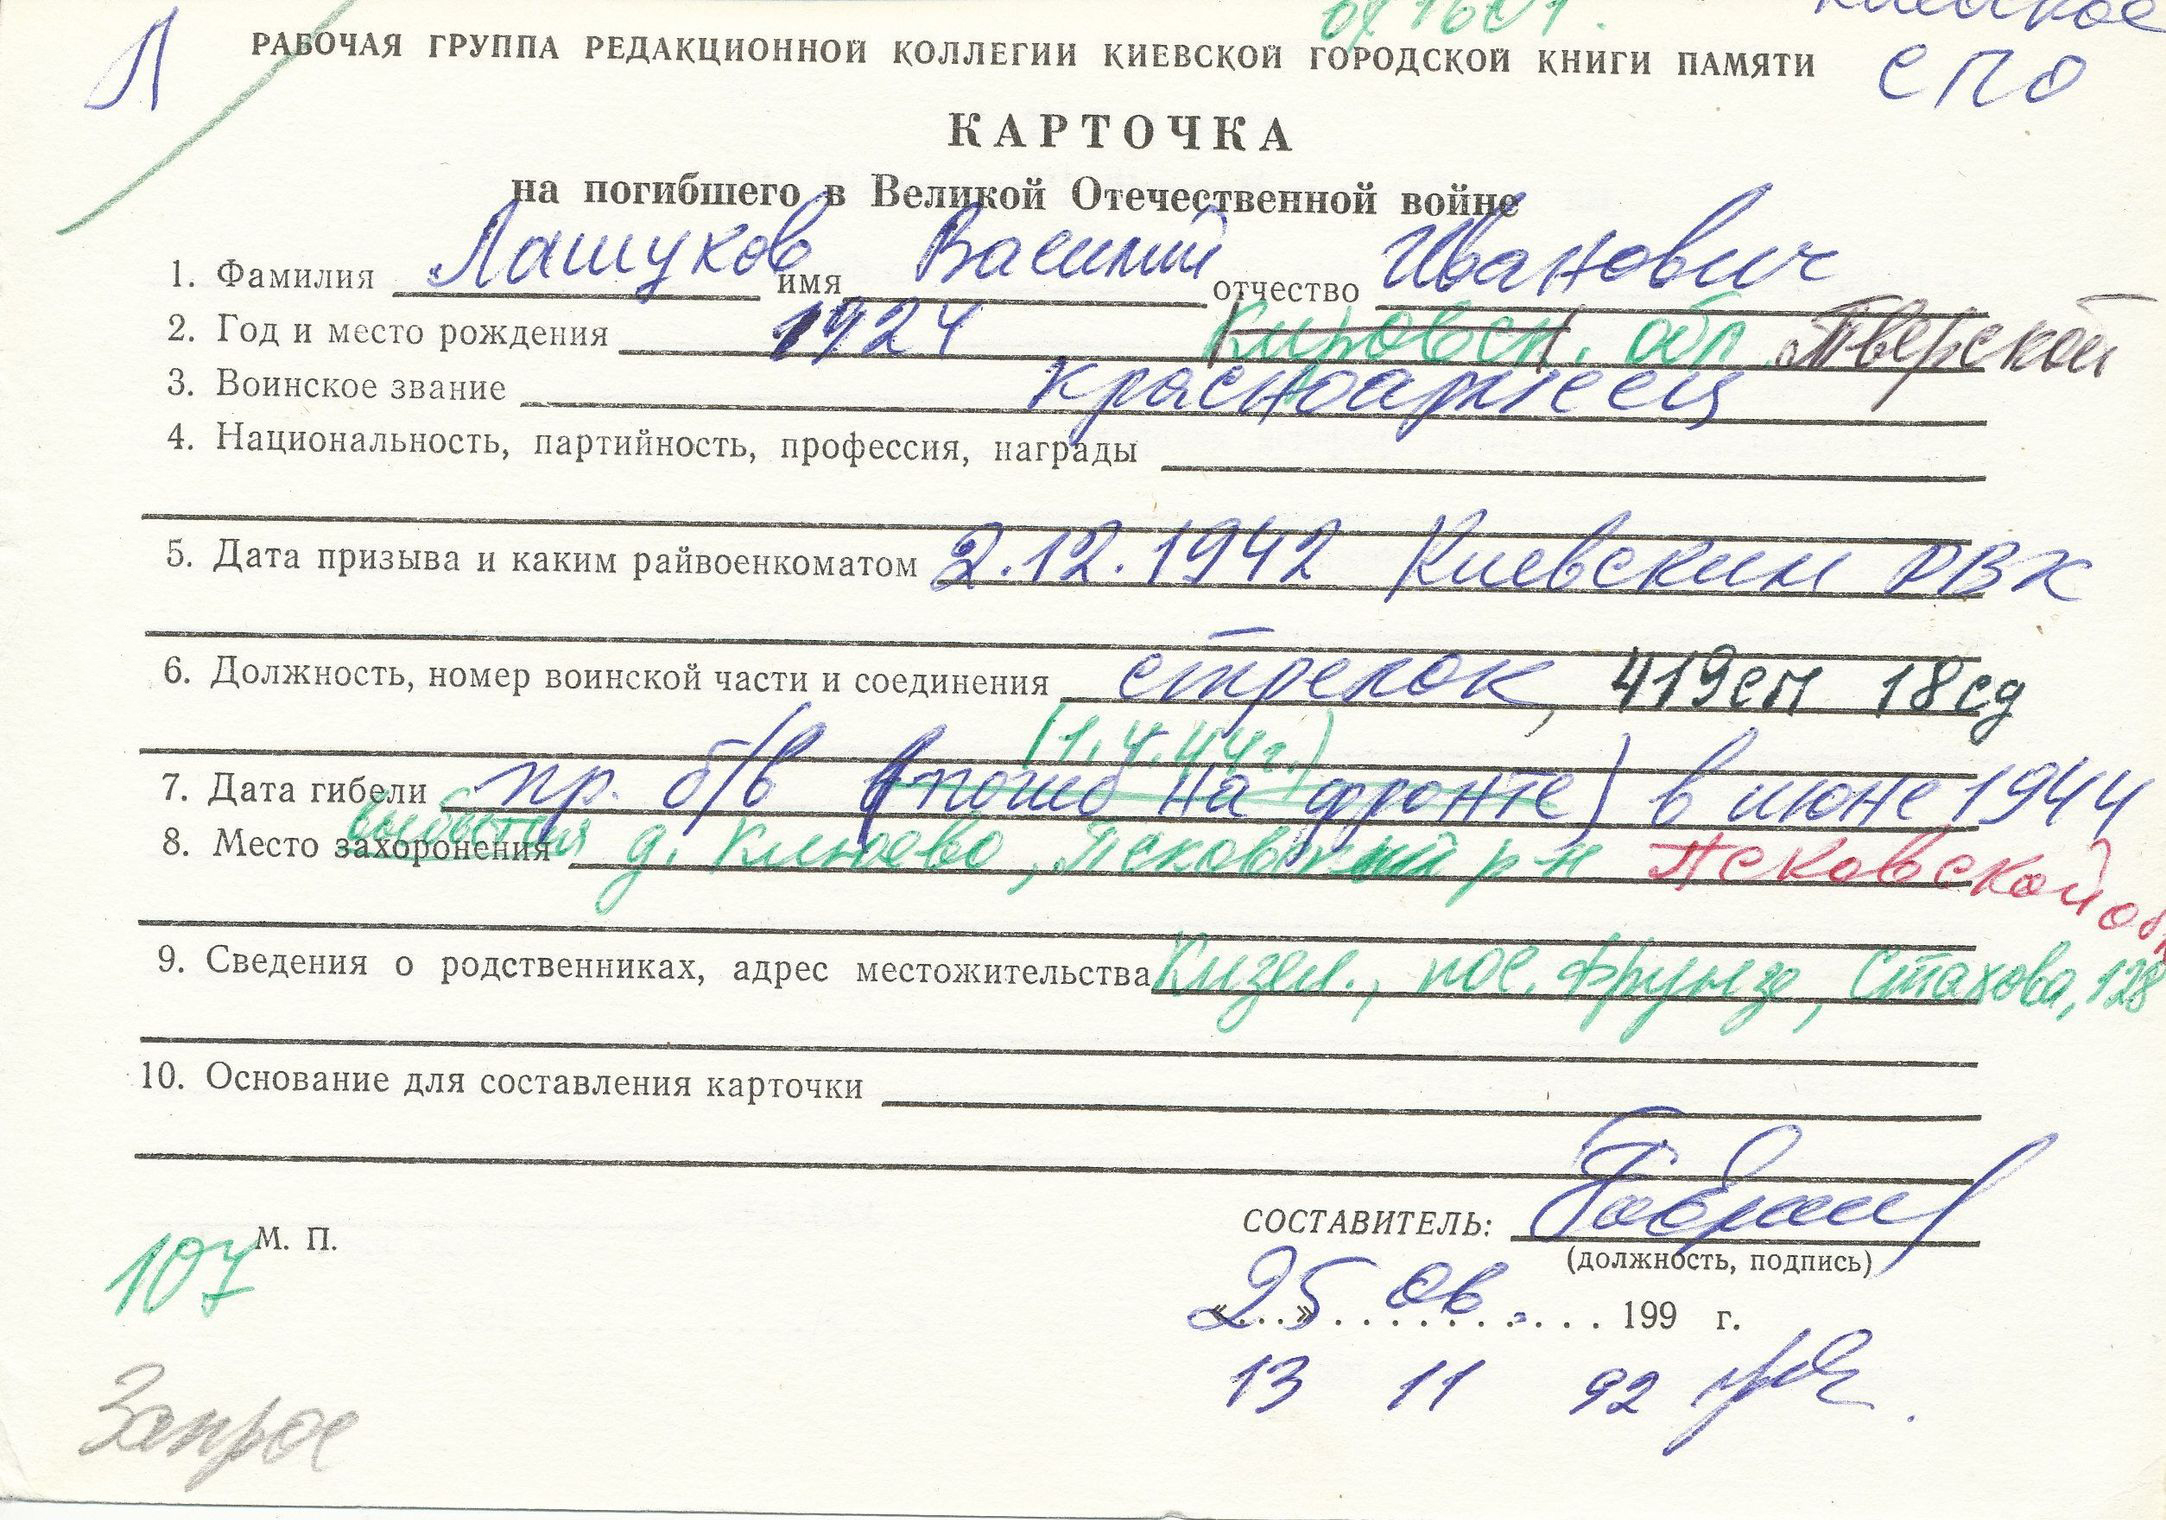 вх 1601.
Л
РАБОЧАЯ ГРУППА РЕДАКЦИОННОЙ КОЛЛЕГИИ КИЕВСКОЙ ГОРОДСКОЙ КНИГИ ПАМЯТИ
СПО
КАРТОЧКА
на погибшего в Великой Отечественной войне
1. Фамилия Лашуков имя Василий отчество Иванович
2. Год и место рождения 1924 Кировск. обл Тверской
3. Воинское звание красноармеец
4. Национальность, партийность, профессия, награды
5. Дата призыва и каким райвоенкоматом 2.12.1942 Киевским РВК
6. Должность, номер воинской части и соединения стрелок, 419сп 18сд
(1.4.44г.)
7. Дата гибели пр. б/в (погиб на фронте) в июне 1944
выбытия
8. Место захоронения д. Клюево, Псковский р-н Псковской обл
9. Сведения о родственниках, адрес местожительства Кизел., пос. Фрунзе, Стахова, 128
10. Основание для составления карточки
М. П.
СОСТАВИТЕЛЬ:
(должность, подпись)
107
«25» 08. 199 г.
13 11 92
Запрос